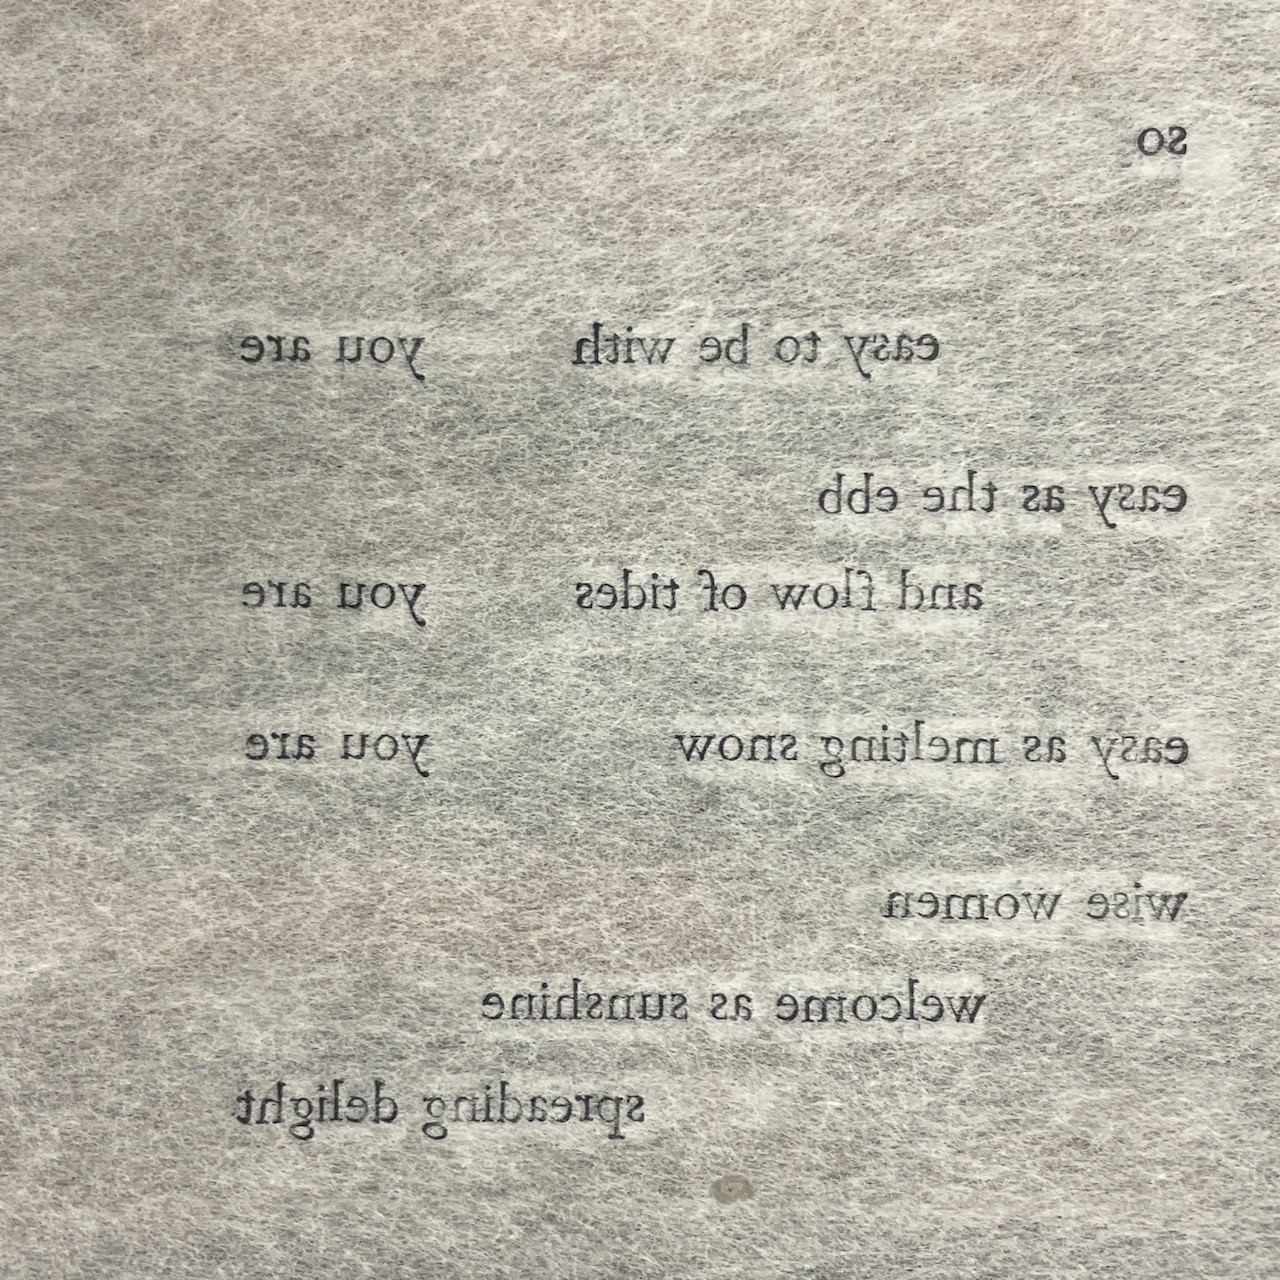 so
easy to be with you are
easy as the ebb
and flow of tides you are
easy as melting snow you are
wise women
welcome as sunshine
spreading delight